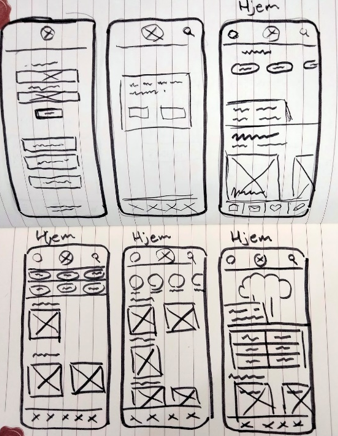 Hjem
Hjem
Hjem
Hjem